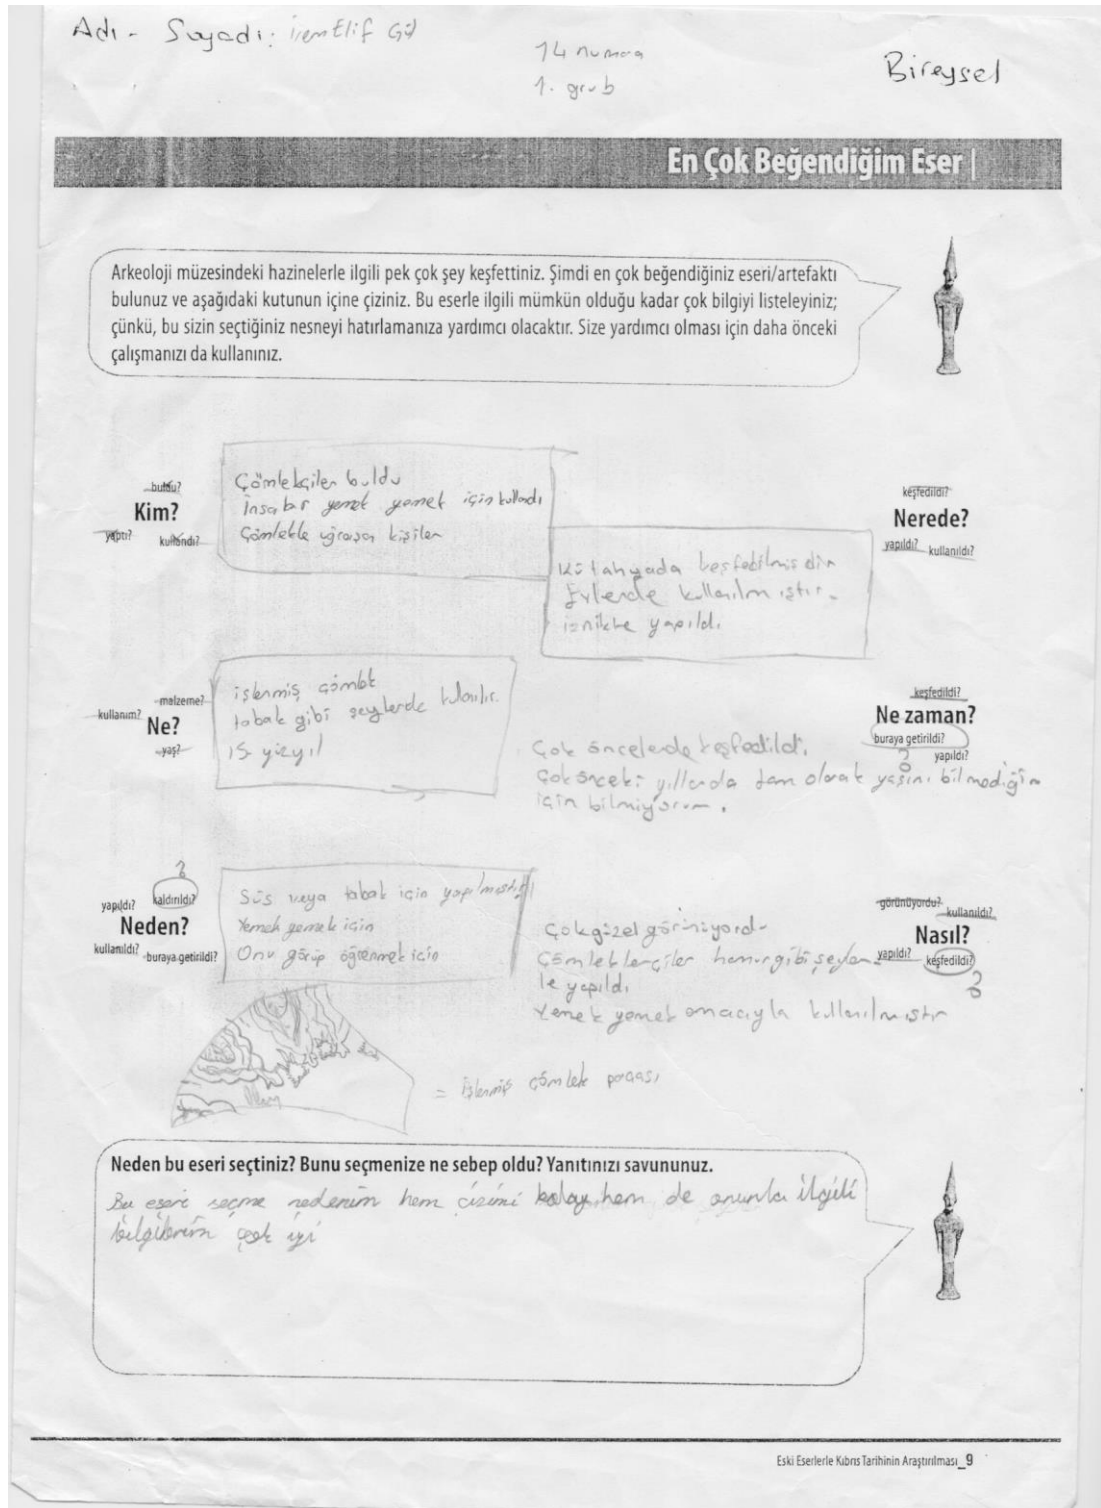 Adı - Soyadı: İrem Elif Gül
14 numara
1. grub
Bireysel
En Çok Beğendiğim Eser |
Arkeoloji müzesindeki hazinelerle ilgili pek çok şey keşfettiniz. Şimdi en çok beğendiğiniz eseri/artefaktı
bulunuz ve aşağıdaki kutunun içine çiziniz. Bu eserle ilgili mümkün olduğu kadar çok bilgiyi listeleyiniz;
çünkü, bu sizin seçtiğiniz nesneyi hatırlamanıza yardımcı olacaktır. Size yardımcı olması için daha önceki
çalışmanızı da kullanınız.
buldu?
Kim?
yaptı? kullandı?
Çömlekçiler buldu
yemek yemek için kullandı
Çömlekle uğraşan kişiler
keşfedildi?
Nerede?
yapıldı? kullanıldı?
Kütahyada keşfedilmişdir
Evlerde kullanılmıştır.
iznikte yapıldı
malzeme?
kullanım?
Ne?
yaş?
işlenmiş çömlek
tabak gibi şeylerde kulanılır.
15 yüzyıl
keşfedildi?
Ne zaman?
buraya getirildi?
?
yapıldı?
Çok öncelerde keşfedildi.
Çok önceki yıllarda tam olarak yaşını bilmediğim
için bilmiyorum.
?
yapıldı? kaldırıldı?
Neden?
kullanıldı? buraya getirildi?
Süs veya tabak için yapılmıştır
Yemek yemek için
Onu görüp öğrenmek için
görünüyordu? kullanıldı?
Nasıl?
yapıldı? keşfedildi?
?
Çok güzel görünüyordu
hamur gibi şeyler
le yapıldı
Yemek yemek amacıyla kullanılmıştır
= işlenmiş çömlek parçası
Neden bu eseri seçtiniz? Bunu seçmenize ne sebep oldu? Yanıtınızı savununuz.
Bu eseri seçme nedenim hem çizimi kolay hem de onunla ilgili
bilgilerim çok iyi
Eski Eserlerle Kıbrıs Tarihinin Araştırılması_9